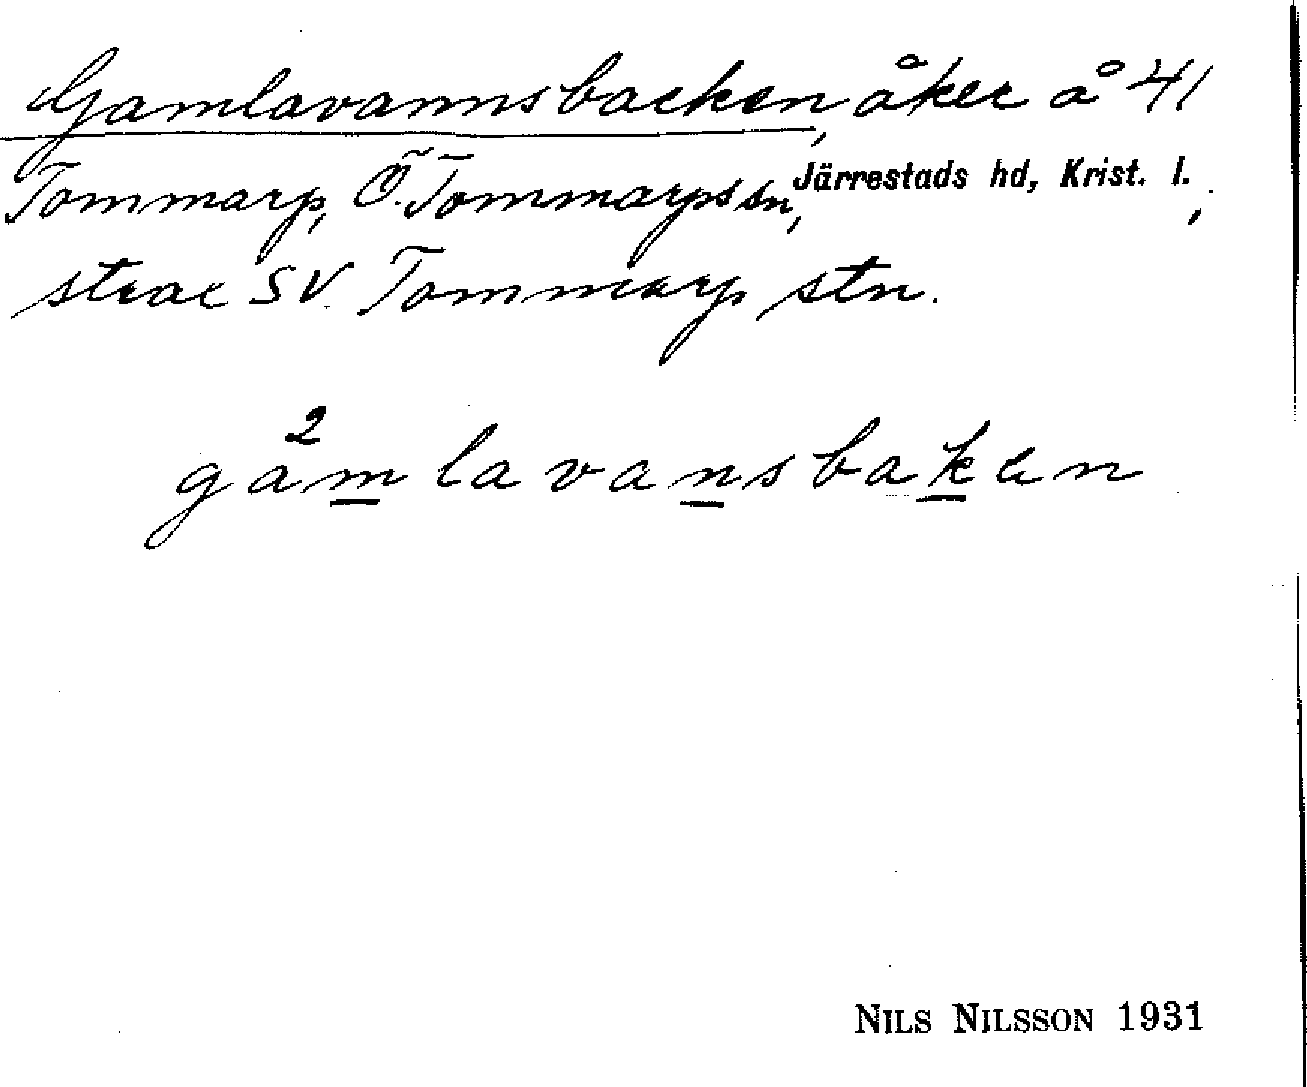 Gamlavannsbacken, åker å 41
Tommarp, Ö. Tommarps sn, Järrestads hd, Krist. l.,
strax SV Tommarp stn.
2
gamlavansbakæn
NILS NILSSON 1931